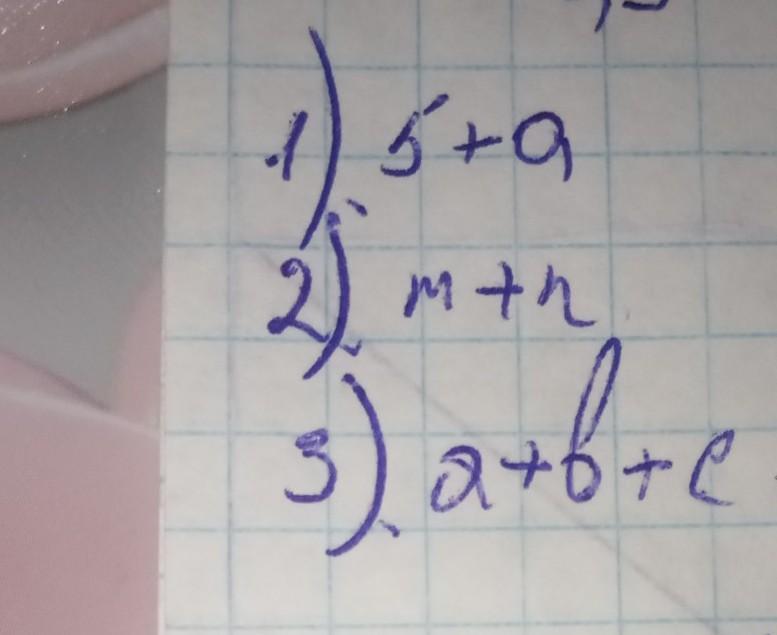 1) 5+a
2) m+n
3). a+b+c